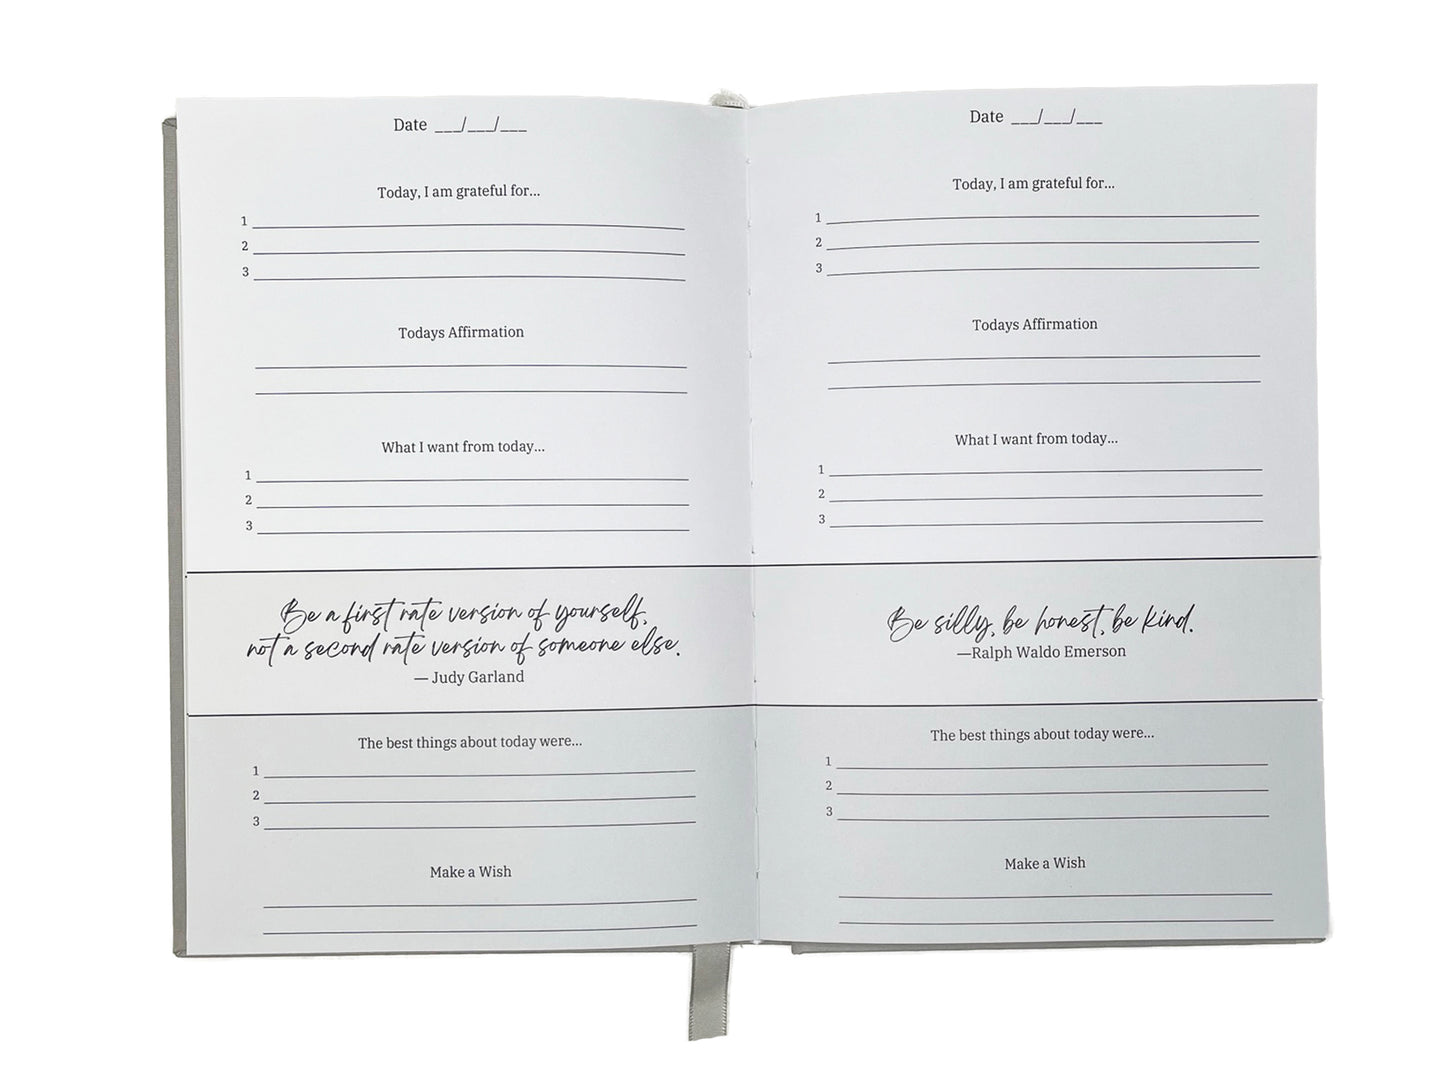 Date ___/___/___
Today, I am grateful for...
1
2
3
Todays Affirmation
What I want from today...
1
2
3
Be a first rate version of yourself,
not a second rate version of someone else.
— Judy Garland
The best things about today were...
1
2
3
Make a Wish
Date ___/___/___
Today, I am grateful for...
1
2
3
Todays Affirmation
What I want from today...
1
2
3
Be silly, be honest, be kind.
—Ralph Waldo Emerson
The best things about today were...
1
2
3
Make a Wish